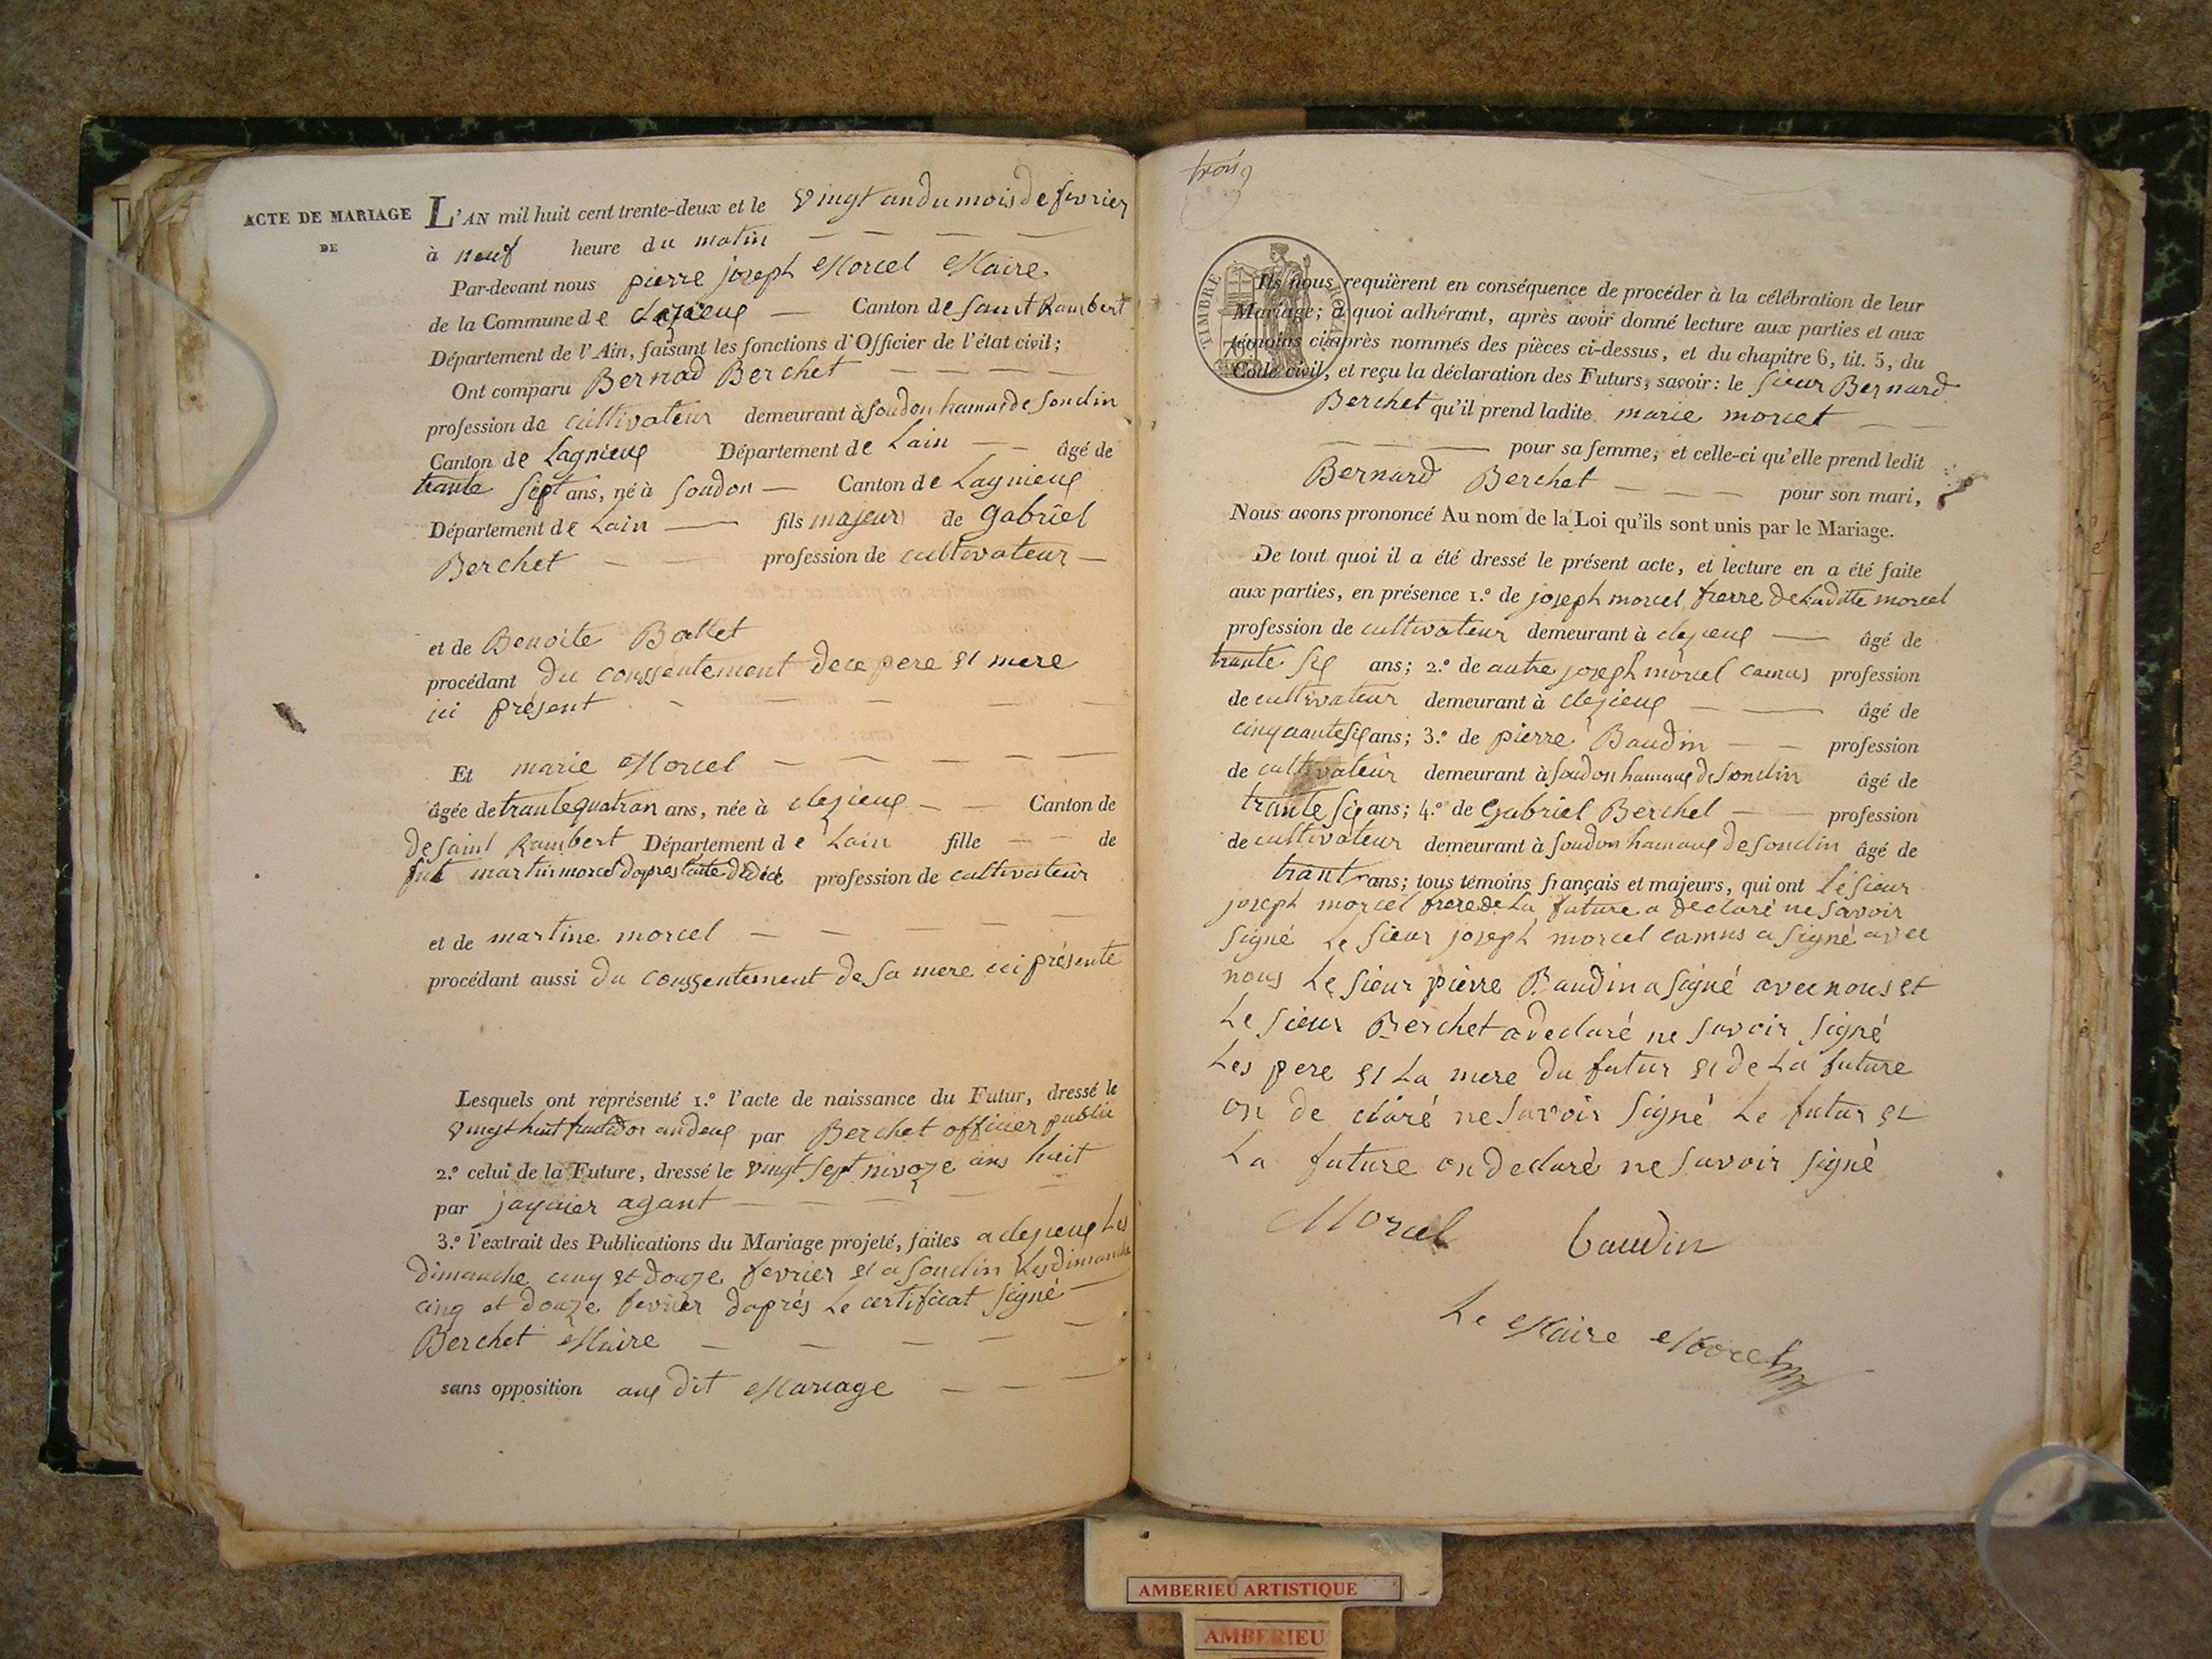 ACTE DE MARIAGE
DE
L'AN mil huit cent trente-deux et le vingt undu mois de fevrier
à neuf heure du matin
Par-devant nous pierre joseph Morcel Maire
de la Commune de Canton de saint Rambert
Département de l'Ain, faisant les fonctions d'Officier de l'état civil;
Ont comparu Bernad Berchet
profession de cultivateur demeurant à Soudon hamus de Souclin
Canton de Lagnieux Département de Lain âgé de
trante sept ans, né à Soudon Canton de Lagnieux
Département de Lain fils majeur de Gabriel
Berchet profession de cultivateur
et de Benoite Ballet
procédant du conssentement de ce pere et mere
ici présent
Et marie Morcel
âgée de trante quatran ans, née à clezieux Canton de
de saint Rambert Département de Lain fille de
fut martin morcel dapres lacte de profession de cultivateur
et de martine morcel
procédant aussi du conssentement de sa mere ici présente
Lesquels ont représenté 1.º l'acte de naissance du Futur, dressé le
vingt huit an deux par Berchet officier public
2.º celui de la Future, dressé le vingt sept nivoze ans huit
par jaquier agant
3.º l'extrait des Publications du Mariage projeté, faites a clezieux Les
dimanche cinq et douze fevrier et a souclin Les dimanche
cinq et douze fevrier daprés Le certificat signé
Berchet Maire
sans opposition aux dit Mariage
trois
TIMBRE ROYAL
70
Ils nous requièrent en conséquence de procéder à la célébration de leur
Mariage; à quoi adhérant, après avoir donné lecture aux parties et aux
témoins ci-après nommés des pièces ci-dessus, et du chapitre 6, tit. 5, du
Code civil, et reçu la déclaration des Futurs, savoir: le sieur Bernard
Berchet qu'il prend ladite marie morcet
pour sa femme, et celle-ci qu'elle prend ledit
Bernard Berchet pour son mari,
Nous avons prononcé Au nom de la Loi qu'ils sont unis par le Mariage.
De tout quoi il a été dressé le présent acte, et lecture en a été faite
aux parties, en présence 1.º de joseph morcel frerre de Laditte morcel
profession de cultivateur demeurant à clezieux âgé de
trante six ans; 2.º de autre joseph morcel camus profession
de cultivateur demeurant à clezieux âgé de
cinquante six ans; 3.º de pierre Baudin profession
de cultivateur demeurant à Soudon hamaux de Souclin âgé de
trante six ans; 4.º de Gabriel Berchet profession
de cultivateur demeurant à Soudon hamaux de Souclin âgé de
trant ans; tous témoins français et majeurs, qui ont Le sieur
joseph morcel frere de La future a declaré ne savoir
signé Le sieur joseph morcel camus a signé avec
nous Le sieur pierre Baudin a signé avec nous et
Le sieur Berchet a declaré ne savoir signé
Les pere et La mere du futur et de La future
on de claré ne savoir signé Le futur et
La future on declaré ne savoir signé
Morcel Baudin
Le Maire Morcel
AMBERIEU ARTISTIQUE
AMBERIEU